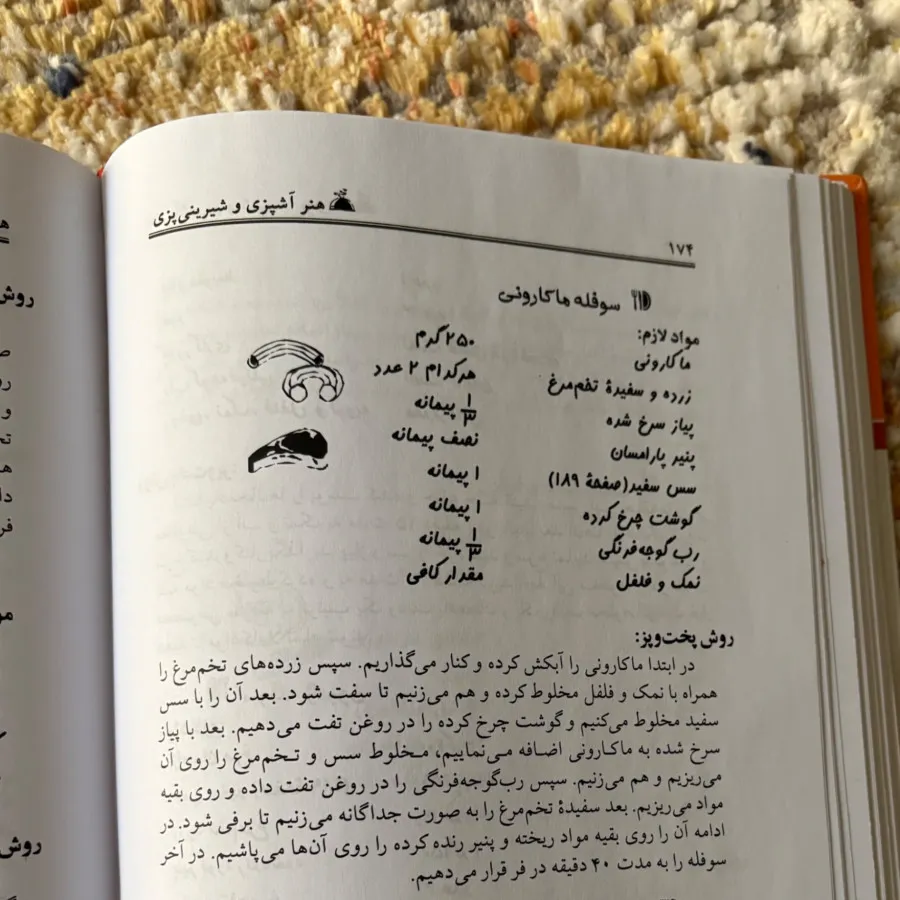 هنر آشپزی و شیرینی‌پزی
۱۷۴
سوفله ماکارونی
مواد لازم:
ماکارونی ۲۵۰ گرم
زرده و سفیدهٔ تخم‌مرغ هرکدام ۲ عدد
پیاز سرخ شده ۱/۳ پیمانه
پنیر پارامسان نصف پیمانه
سس سفید (صفحهٔ ۱۸۹) ۱ پیمانه
گوشت چرخ کرده ۱ پیمانه
رب گوجه‌فرنگی ۱/۳ پیمانه
نمک و فلفل مقدار کافی
روش پخت‌وپز:
در ابتدا ماکارونی را آبکش کرده و کنار می‌گذاریم. سپس زرده‌های تخم‌مرغ را
همراه با نمک و فلفل مخلوط کرده و هم می‌زنیم تا سفت شود. بعد آن را با سس
سفید مخلوط می‌کنیم و گوشت چرخ کرده را در روغن تفت می‌دهیم. بعد با پیاز
سرخ شده به ماکارونی اضافه می‌نماییم، مخلوط سس و تخم‌مرغ را روی آن
می‌ریزیم و هم می‌زنیم. سپس رب‌گوجه‌فرنگی را در روغن تفت داده و روی بقیه
مواد می‌ریزیم. بعد سفیدهٔ تخم‌مرغ را به صورت جداگانه می‌زنیم تا برفی شود. در
ادامه آن را روی بقیه مواد ریخته و پنیر رنده کرده را روی آن‌ها می‌پاشیم. در آخر
سوفله را به مدت ۴۰ دقیقه در فر قرار می‌دهیم.
روش
روش